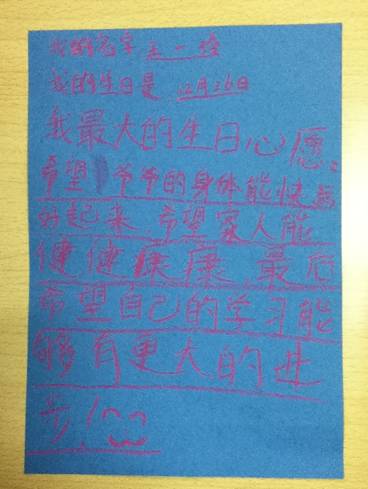 我的名字 王一
我的生日是 12月26日
我最大的生日心愿：
希望爷爷的身体能快点
好起来 希望家人能
健健康康 最后
希望自己的学习能
够有更大的进
步！